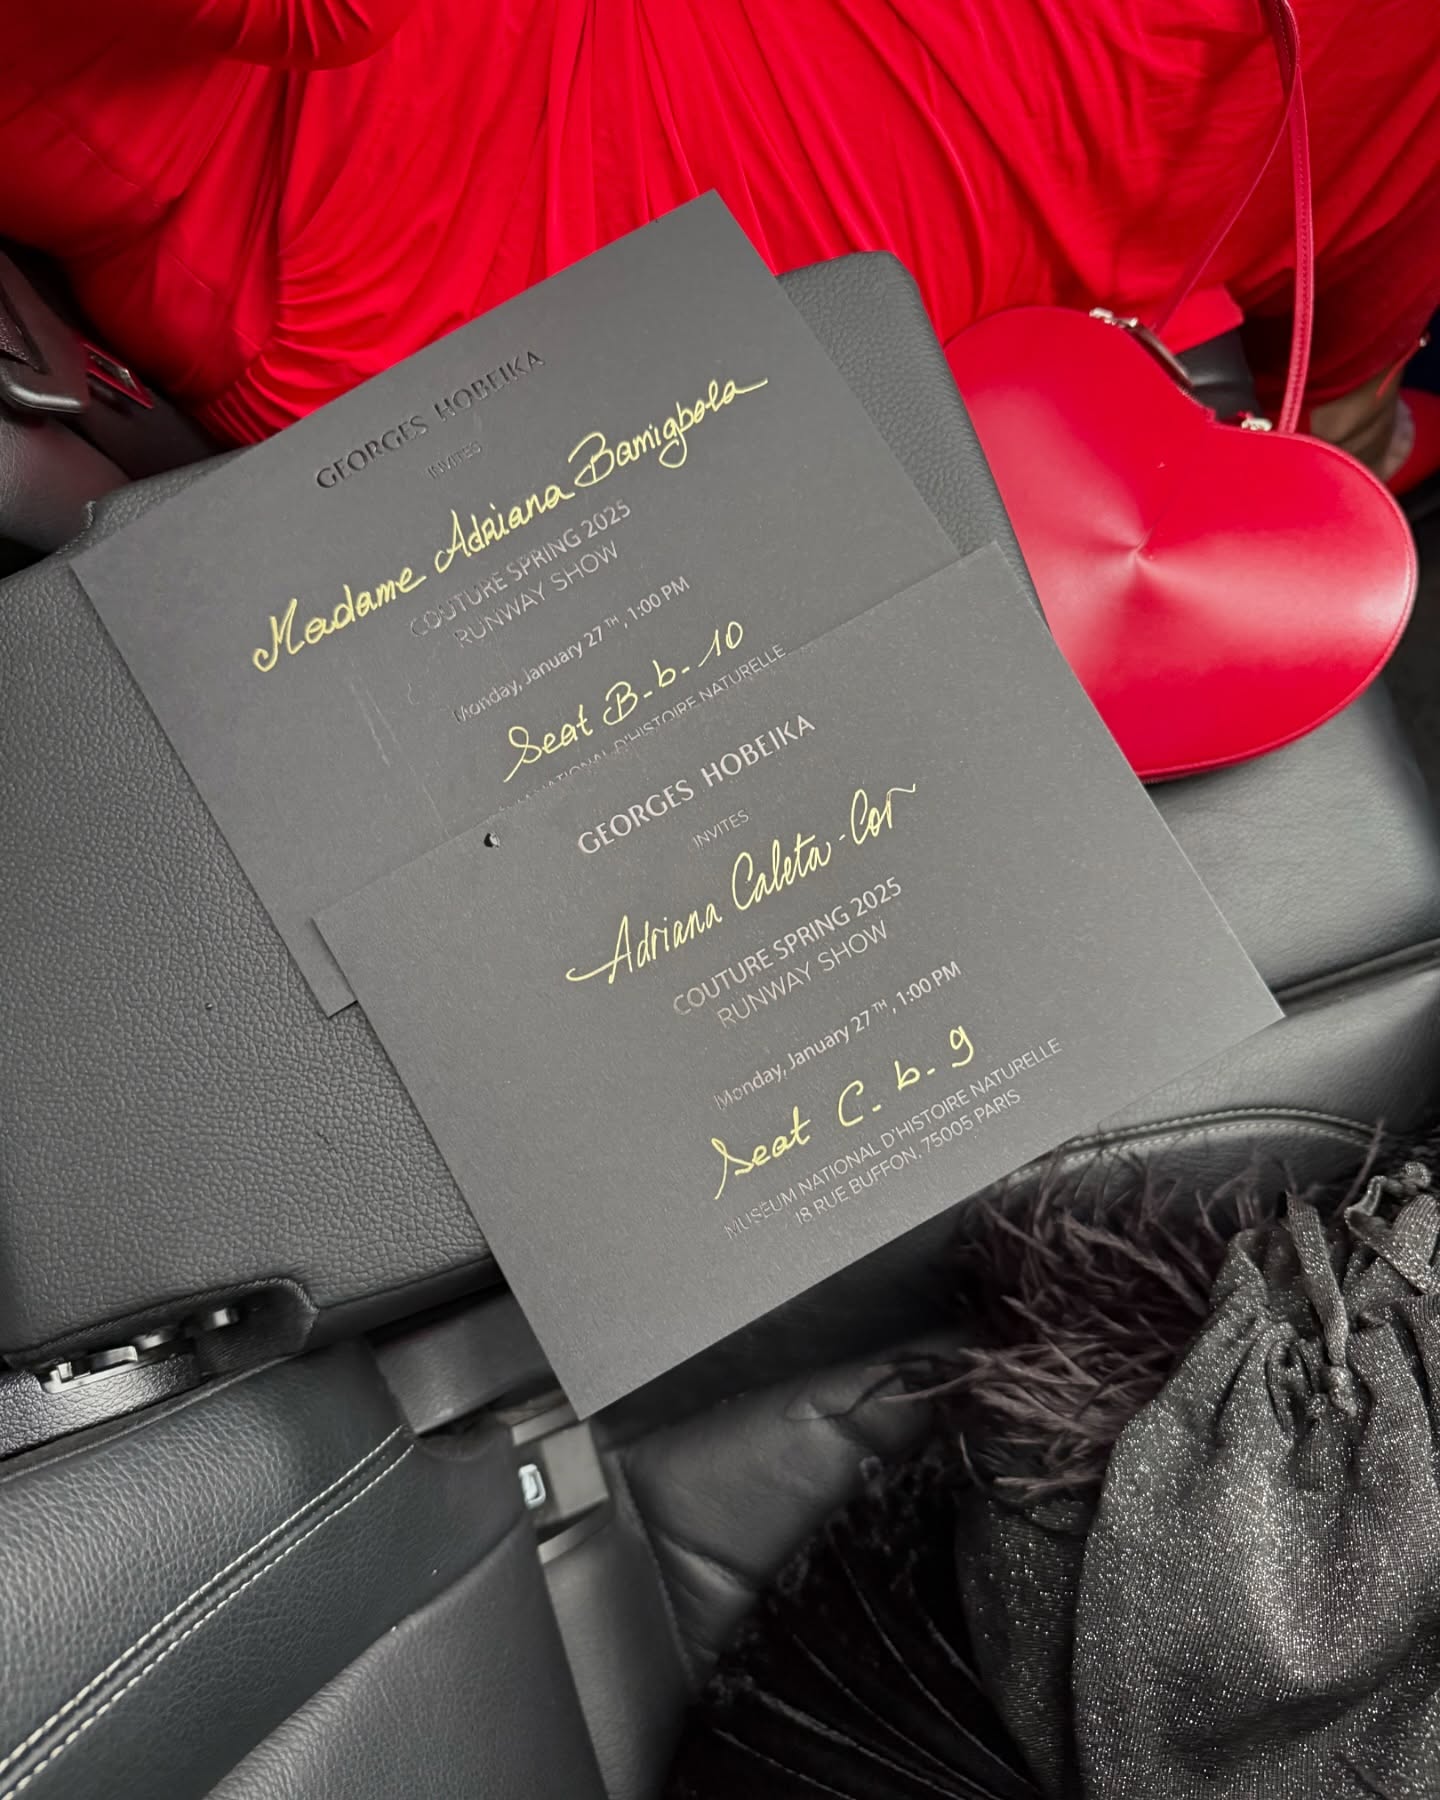 GEORGES HOBEIKA
INVITES
Madame Adriana Bamigbola
COUTURE SPRING 2025
RUNWAY SHOW
Monday, January 27TH, 1:00 PM
Seat B-b-10
NATIONAL D'HISTOIRE NATURELLE
GEORGES HOBEIKA
INVITES
Adriana Caleta-Cor
COUTURE SPRING 2025
RUNWAY SHOW
Monday, January 27TH, 1:00 PM
Seat C-b-9
MUSEUM NATIONAL D'HISTOIRE NATURELLE
18 RUE BUFFON, 75005 PARIS